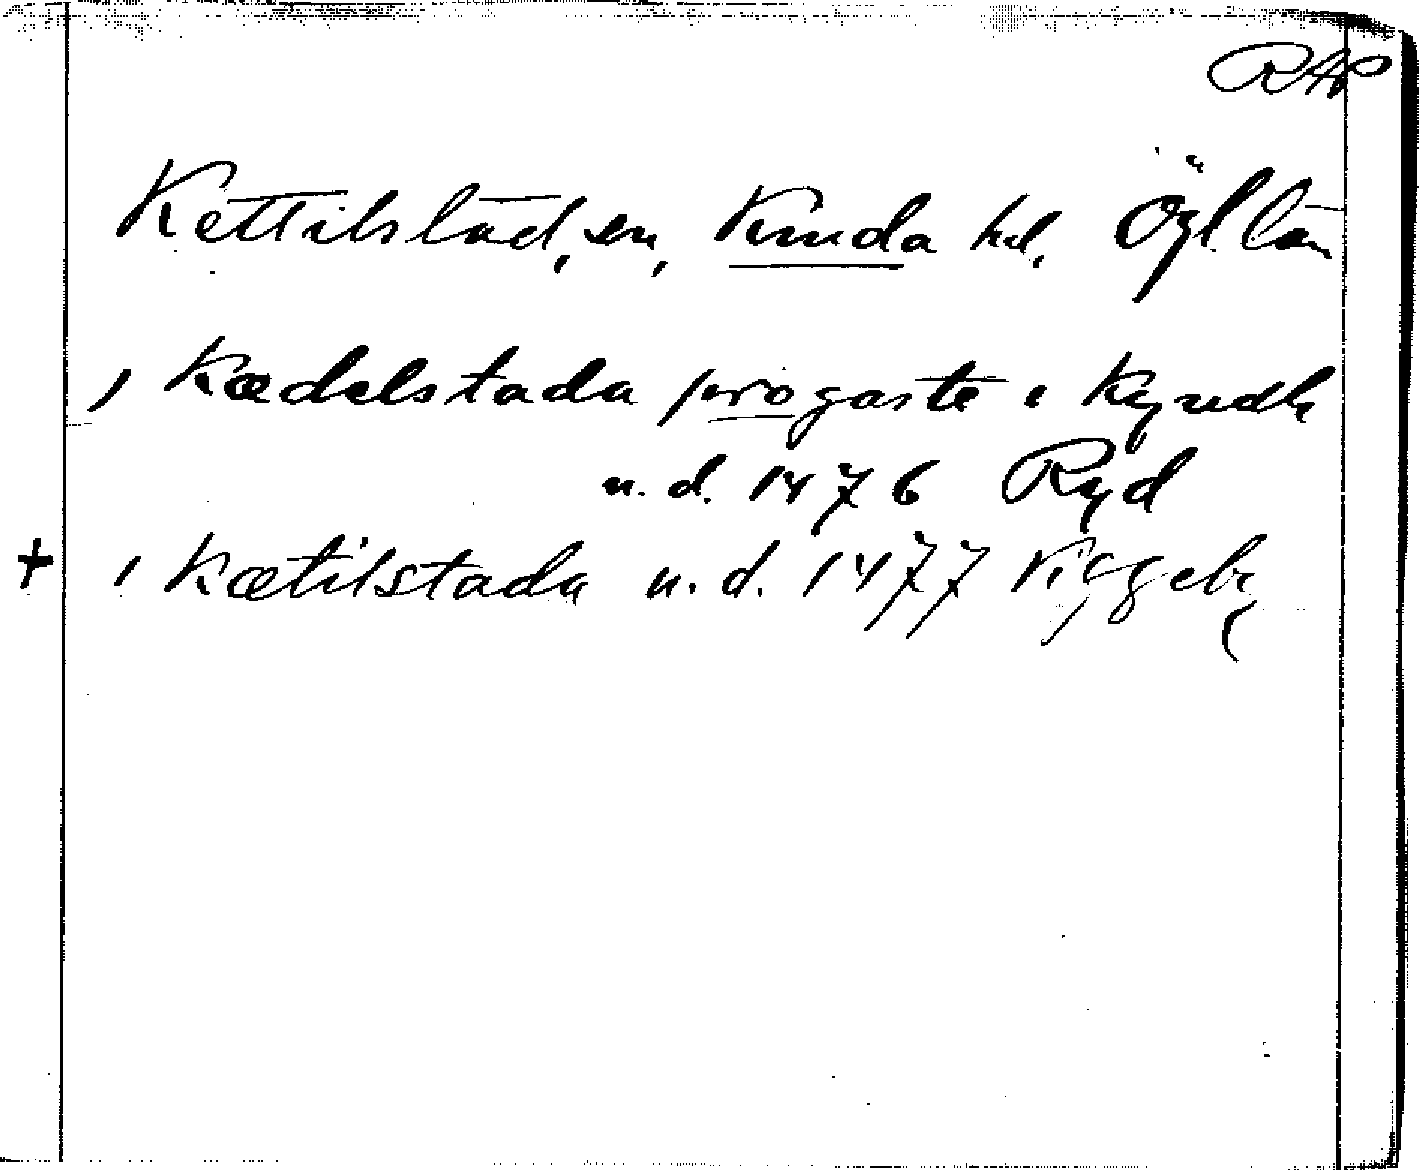 RAP
Kettilstad, sn, Kinda hd, Ögl. län
, Kædelstada progaste i Kyndh
u. d. 1476 Ryd
+ , Kætilstada u. d. 1477 Viggeby